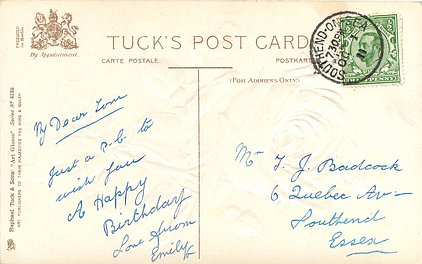 PRODUCED
in Berlin
By Appointment.
TUCK'S POST CARD
CARTE POSTALE
POSTKARTE
(FOR ADDRESS ONLY.)
SOUTHEND-ON-SEA
7.30PM
OC 1
11
My Dear Tom
Just a P.C. to
wish you
A Happy
Birthday
Love from
Emily
Mr T. J. Badcock
6 Quebec Av-
Southend
Essex
Raphael Tuck & Sons' "Art Gloss" Series No 4135
ART PUBLISHERS TO THEIR MAJESTIES THE KING & QUEEN